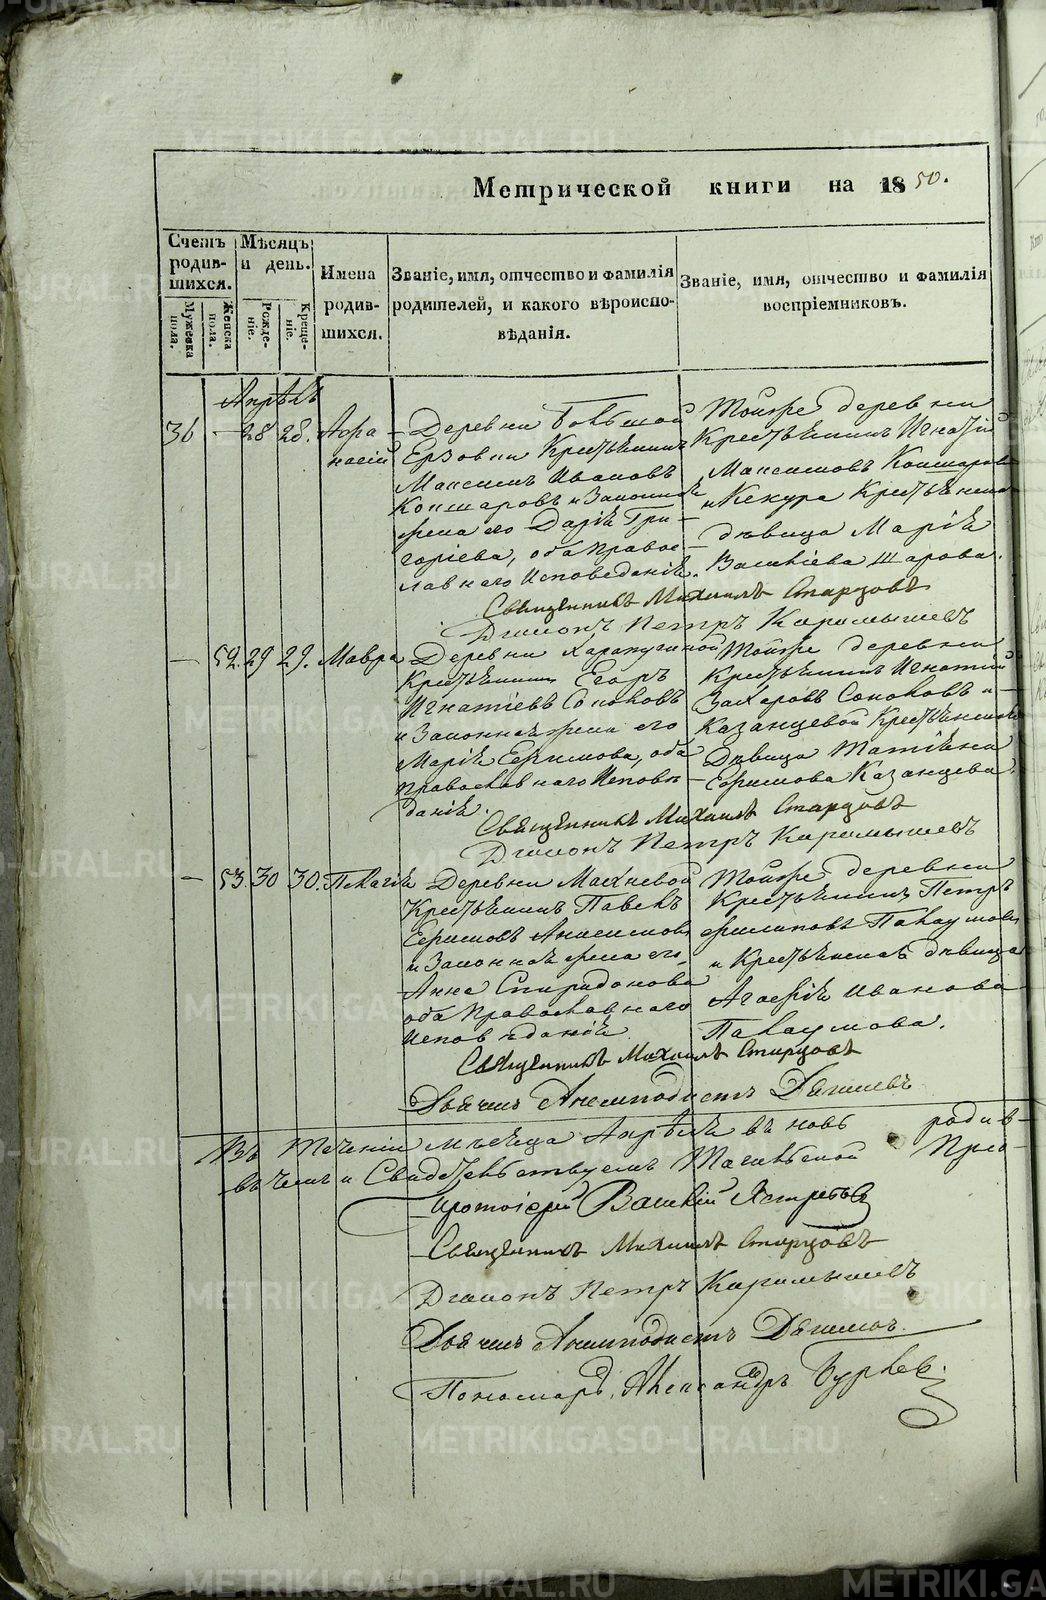 Метрической книги на 1850.
Счетъ родившихся.
Мужеска пола.
Женска пола.
Мѣсяцъ и день.
Рожденіе.
Крещеніе.
Имена родившихся.
Званіе, имя, отчество и фамилія
родителей, и какого вѣроиспо-
вѣданія.
Званіе, имя, отчество и фамилія
воспріемниковъ.
Апрѣль
36 — 28 28. Афа-
насій
Деревни Большой
Ерзовки Крестьянинъ
Максимъ Ивановъ
Кокшаровъ и Законная
жена его Дарія Гри-
горіева, оба Право-
славнаго Исповеданія.
Тойже деревни
Крестьянинъ Игнатій
Максимовъ Кокшаровъ
и Кекура Крестьянская
дѣвица Марія
Васильева Шарова.
Священникъ Михаилъ Старцовъ
Діаконъ Петръ Карамышевъ
— 52. 29 29. Мавра
Деревни Карапузиной
Крестьянинъ Егоръ
Игнатіевъ Соколовъ
и Законная жена его
Марія Ефимова, оба
Православнаго Исповѣ-
данія.
Тойже деревни
Крестьянинъ Игнатій
Захаровъ Соколовъ и
Казанцевой Крестьянская
Дѣвица Татіяна
Ефимова Казанцева.
Священникъ Михаилъ Старцовъ
Діаконъ Петръ Карамышевъ
— 53. 30 30. Пелагія
Деревни Махневой
Крестьянинъ Павелъ
Ефимовъ Анисимовъ
и Законная жена его
Анна Спиридонова
оба Православнаго
Исповѣданія.
Тойже деревни
Крестьянинъ Петръ
Филиповъ Пакаумовъ
и Крестьянская дѣвица
Агафія Иванова
Пакаумова.
Священникъ Михаилъ Старцовъ
Дьячекъ Анемподистъ
Въ теченіи мѣсяца Апрѣля вновь родив-
въ чемъ и Свидѣтельствуемъ Тагильской
Протоіерей Василій Ястребовъ
Священникъ Михаилъ Старцовъ
Діаконъ Петръ Карамышевъ
Дьячекъ Анемподистъ
Пономарь Александръ
METRIKI.GASO-URAL.RU